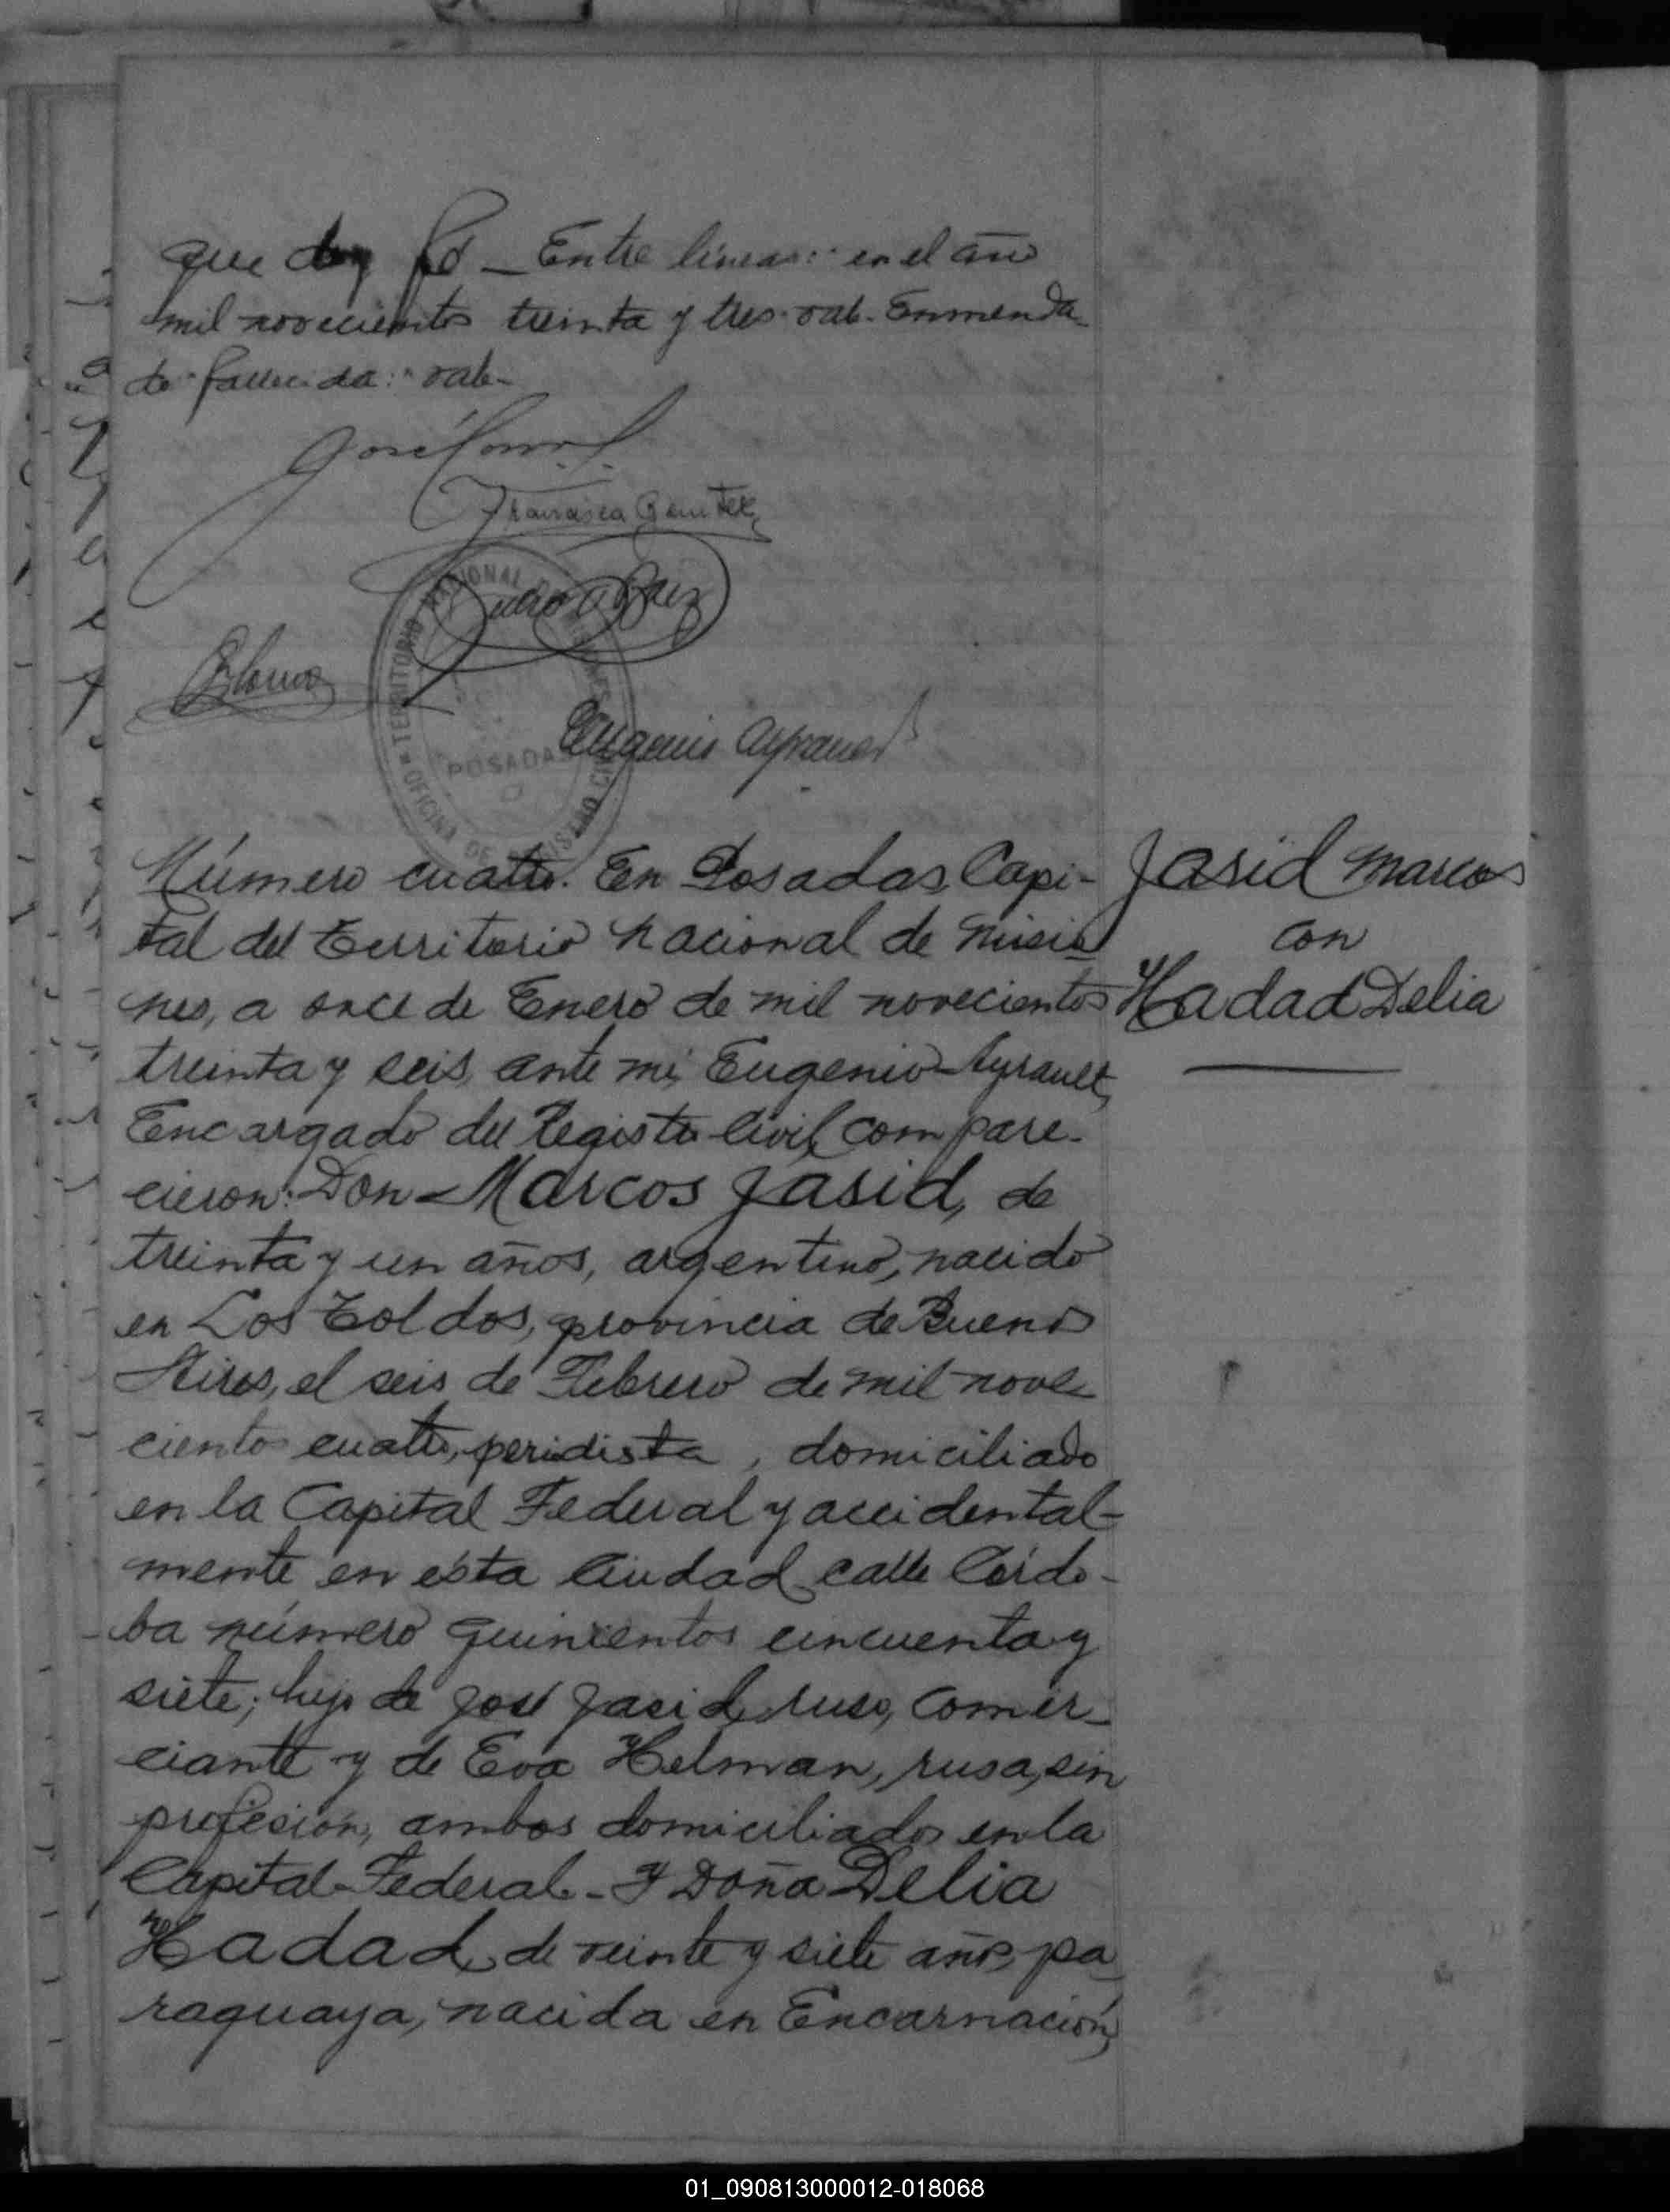 que doy fé _ Entre lineas: en el año
mil novecientos treinta y tres. vale. Enmenda
do "fallecida:" vale-
José
Francisca
Blanco
TERRITORIO NACIONAL DE MISIONES
OFICINA DE REGISTRO CIVIL
POSADAS
Eugenio Ayrault
Número cuatro. En Posadas, Capi-
tal del Territorio Nacional de Misio
nes, a once de Enero de mil novecientos
treinta y seis, ante mí, Eugenio Ayrault,
Encargado del Registro Civil, compare-
cieron: Don Marcos Jasid, de
treinta y un años, argentino, nacido
en Los Toldos, provincia de Buenos
Aires, el seis de Febrero de mil nove
cientos cuatro, peridista, domiciliado
en la Capital Federal y accidental-
mente en ésta Ciudad calle Córdo-
ba número quinientos cincuenta y
siete; hijo de José Jasid, ruso, comer-
ciante y de Eva Helman, rusa, sin
profesión, ambos domiciliados en la
Capital Federal.- Y Doña Delia
Hadad, de veinte y siete años, pa
raguaya, nacida en Encarnación,
Jasid Marcos
con
Hadad Delia
01_090813000012-018068